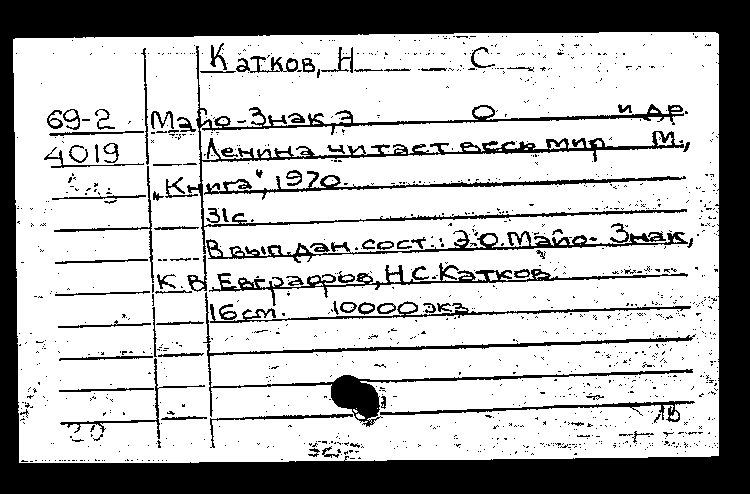 Катков, Н С
69-2 Майо-Знак, Э О и др.
4019 Ленина читает весь мир. М.,
„Книга“, 1970.
31с.
В вып. дан. сост.: Э.О. Майо-Знак,
К.В. Евграфов, Н.С. Катков.
16 ст. 10000 экз.
20